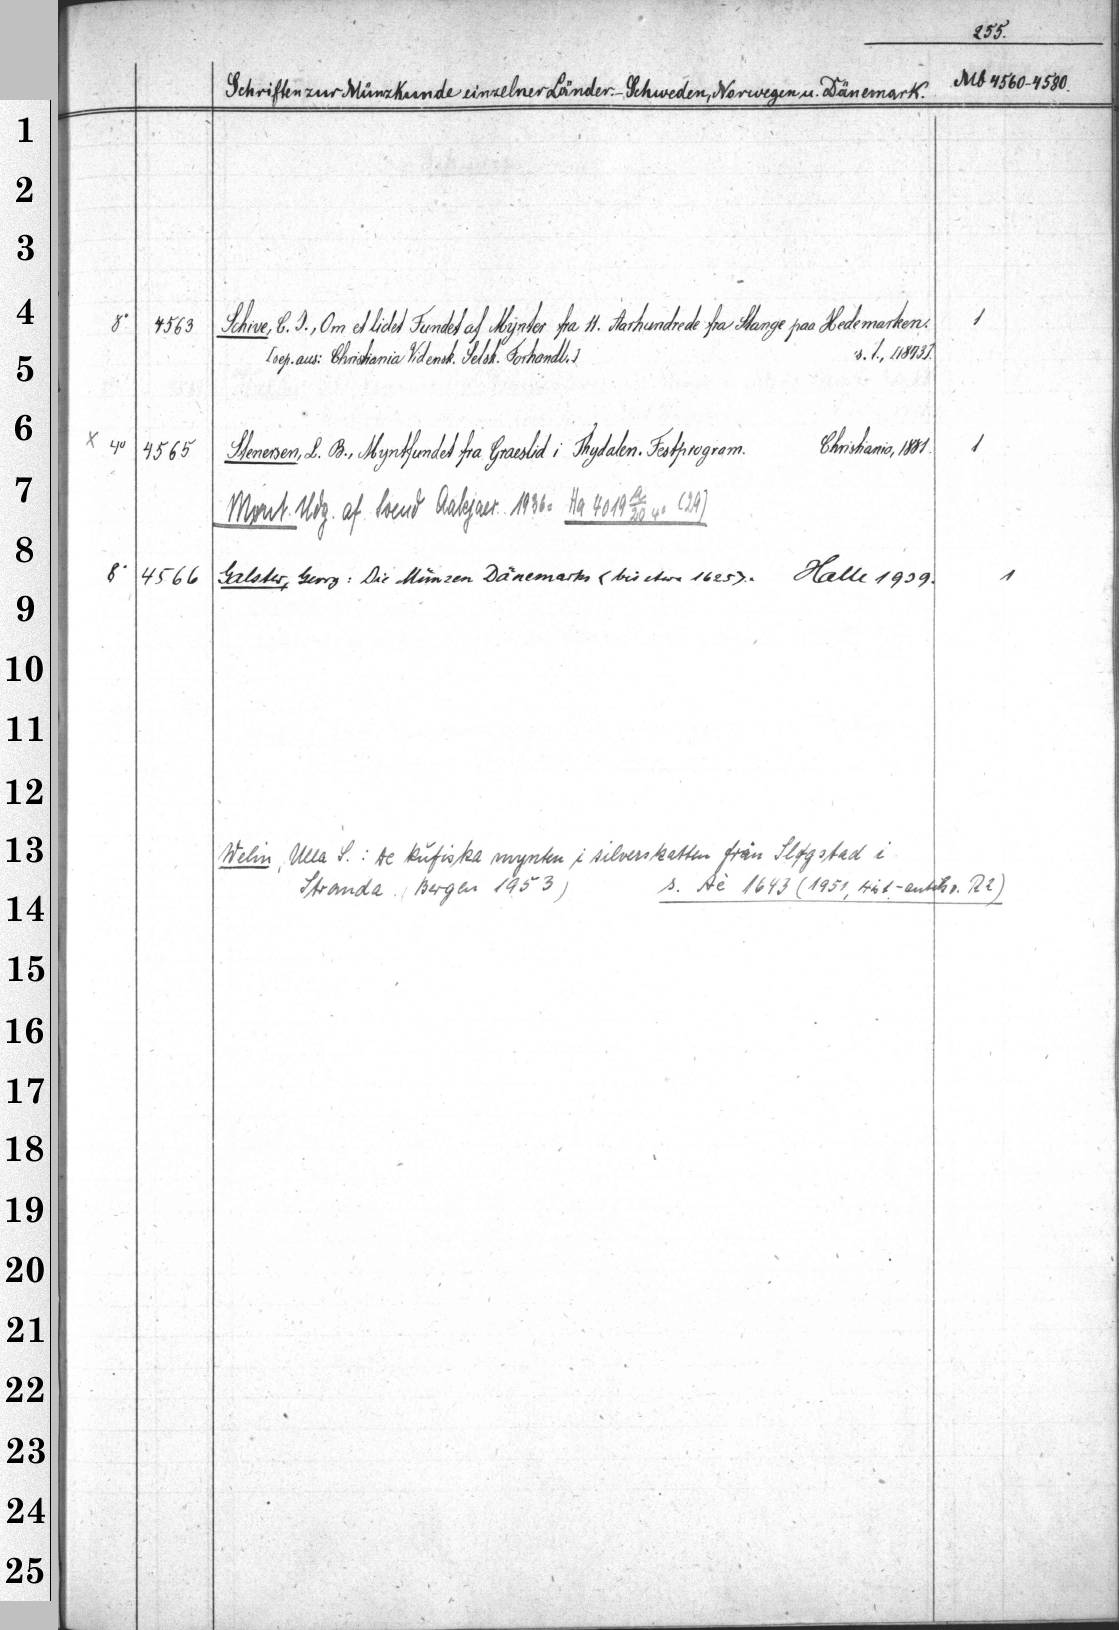 255.
Schriften zur Münzkunde einzelner Länder. - Schweden, Norwegen u. Dänemark. Mb 4560-4580.
1
2
3
4 8° 4563 Schive, C. I., Om et lidet Fundet af Mynter fra 11. Aarhundrede fra Stange paa Hedemarken. 1
5 [sep. aus: Christiania Vidensk. Selsk. Forhandl.] s. l., [1873].
6 X 4° 4565 Stenersen, L. B., Myntfundet fra Graeslid i Thydalen. Festprogram. Christiania, 1881. 1
7 Mønt. Udg. af Svend Aakjaer. 1936. Ha 4019 4° (29)
8 8° 4566 Galster, Georg: Die Münzen Dänemarks <bis etwa 1625>. Halle 1939. 1
9
10
11
12
13 Welin, Ulla S.: De kufiska mynten i silverskatten från Sløgstad i
14 Stranda. (Bergen 1953) s. Aè 1643 (1951, hist.-antikv. R 2)
15
16
17
18
19
20
21
22
23
24
25